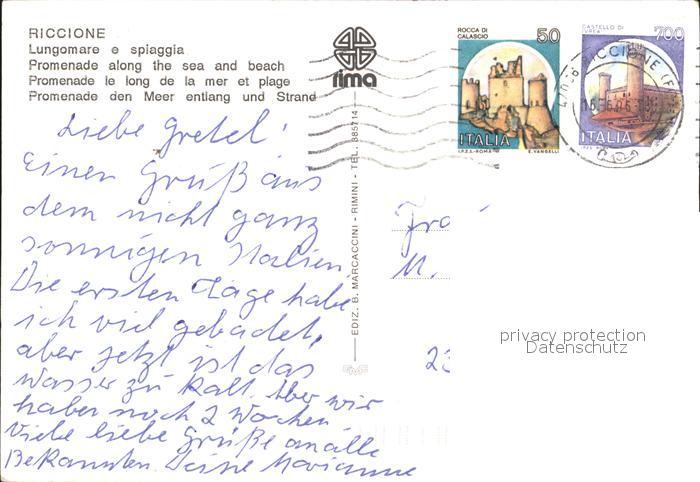 RICCIONE
Lungomare e spiaggia
Promenade along the sea and beach
Promenade le long de la mer et plage
Promenade den Meer entlang und Strand
rima
ROCCA DI CALASCIO
50
ITALIA
I.P.Z.S.-ROMA
E. VANGELLI
CASTELLO DI IVREA
700
ITALIA
RICCIONE
EDIZ. B. MARCACCINI - RIMINI - TEL. 385714
Liebe Gretel!
Einen Gruß aus
dem nicht ganz
sonnigen Italien.
Die ersten Tage habe
ich viel gebadet,
aber jetzt ist das
Wasser zu kalt. Aber wir
haben noch 2 Wochen.
Viele liebe Grüße an alle
Bekannten. Deine Marianne
Fra
M.
23
privacy protection
Datenschutz